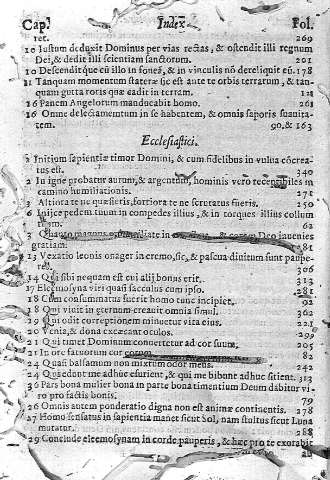 Cap. Index Fol.
ret. 269
10 Iustum deduxit Dominus per vias rectas, & ostendit illi regnum
Dei, & dedit illi scientiam sanctorum. 201
10 Descenditque cū illo in foueā, & in vinculis nō dereliquit eū. 178
11 Tanquam momentum staterę sic est ante te orbis terratum, & tan-
quam gutta roris quæ cadit in terram. 121
16 Panem Angelorum manducabit homo. 261
16 Omne delectamentum in se habentem, & omnis saporis suauita-
tem. 90. & 163
Ecclesiastici.
2 Initium sapientiæ timor Domini, & cum fidelibus in vulua cõcrea-
tus est. 340
2 In igne probatur aurum, & argentum, hominis vero receptibiles in
camino humiliationis. 271
3 Altiora te ne quæsieris, fortiora te ne scrutatus fueris. 250
6 Inijce pedem tuum in compedes illius, & in torques illius collum
tuum. 62
3 Quanto magnus humiliate in & coram Deo inuenies
gratiam: 281
13 Vexatio leonis onager in eremo, sic, & pascua diuitum sunt paupe-
res. 306
14 Qui sibi nequam est cui alij bonus erit. 313
17 Eleemosyna viri quasi sacculus cum ipso. 281
18 Cum consummatus fuerit homo tunc incipiet. 92
18 Qui viuit in æternum creauit omnia simul.
19 Qui odit correptionem minuetur vita eius. 221
20 Xenia, & dona excæcant oculos. 299
21 Qui timet Dominum conuertetur ad cor suum.
21 In ore fatuorum cor eorum 82
24 Quasi balsamum non mixtum odor meus. 242
24 Qui edent me adhuc esurient, & qui me bibunt adhuc sitient. 313
36 Pars bona mulier bona in parte bona timentium Deum dabitur vi-
ro pro factis bonis. 79
26 Omnis autem ponderatio digna non est animæ continentis. 278
27 Homo sensatus in sapientia manet sicut Sol, nam stultus sicut Luna
mutatur. 288
29 Conclude eleemosynam in corde pauperis, & hæc pro te exorabit
ab